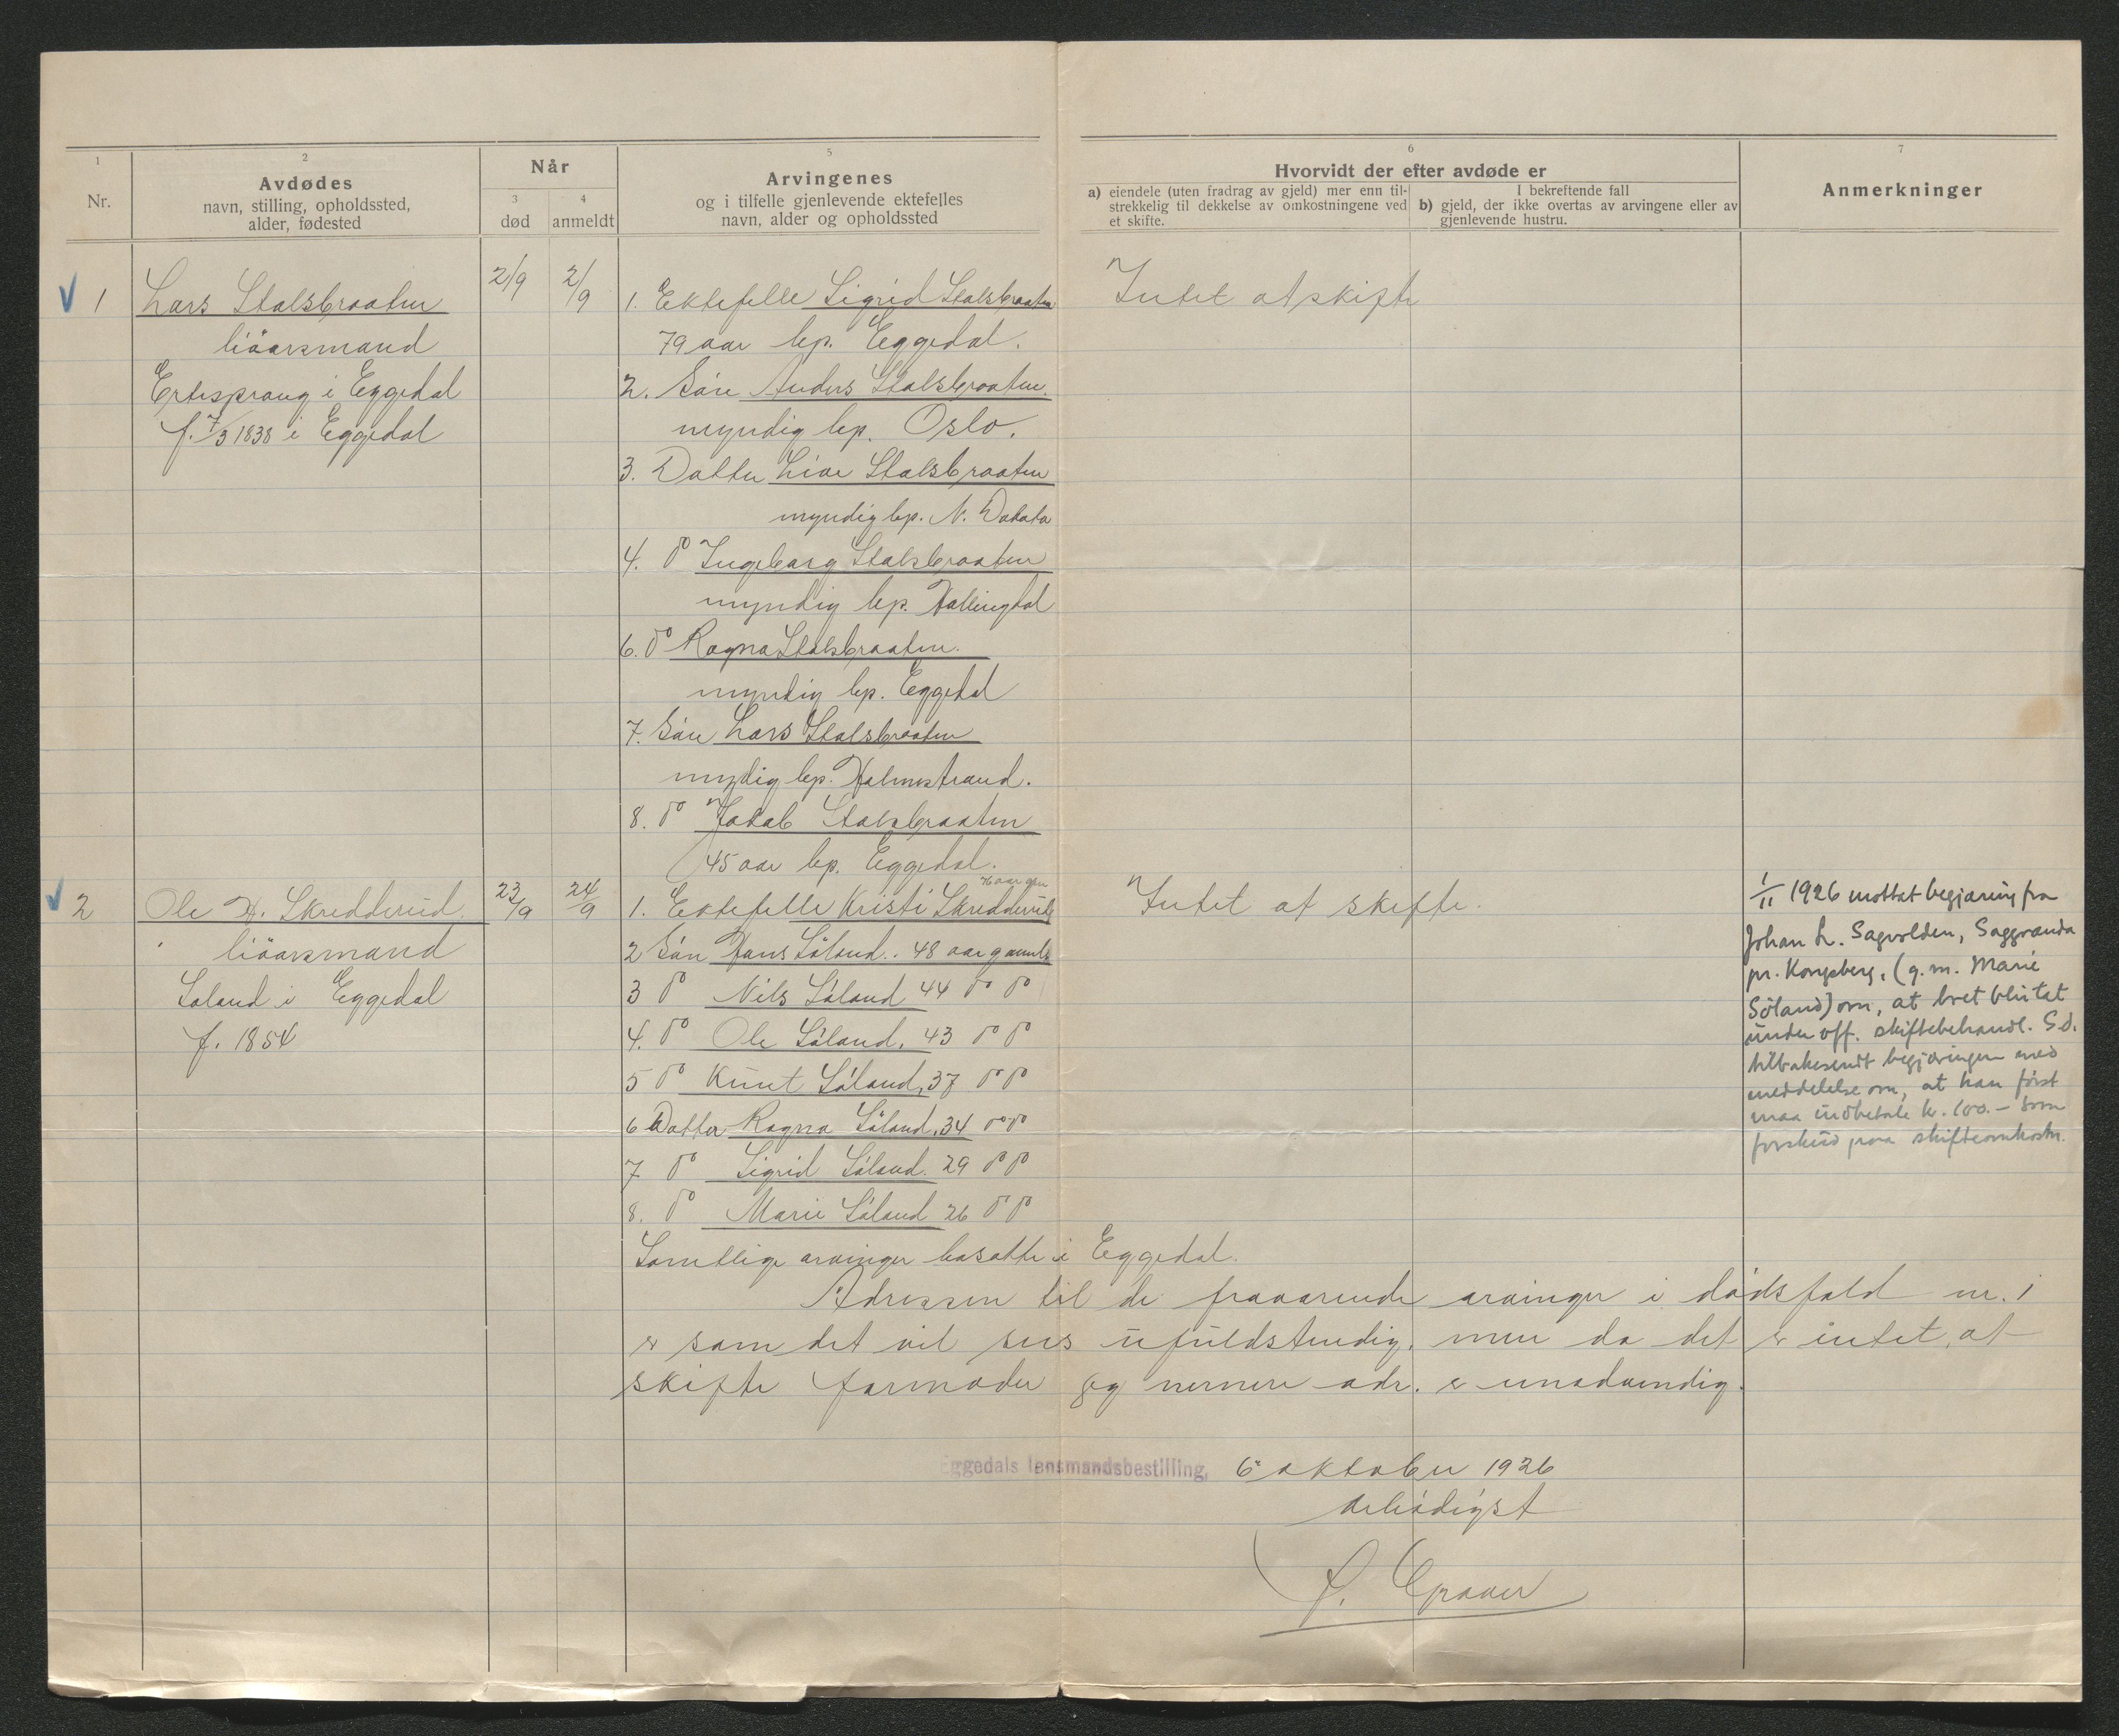 1
Nr.
2
Avdødes
navn, stilling, opholdssted,
alder, fødested
Når
3
død
4
anmeldt
5
Arvingenes
og i tilfelle gjenlevende ektefelles
navn, alder og opholdssted
6
Hvorvidt der efter avdøde er
a) eiendele (uten fradrag av gjeld) mer enn til-
strekkelig til dekkelse av omkostningene ved
et skifte.
I bekreftende fall
b) gjeld, der ikke overtas av arvingene eller av
gjenlevende hustru.
7
Anmerkninger
1
Lars Stalsbraaten
liöarsmand
i Eggedal
f. 7/3 1838 i Eggedal
2/9
2/9
1. Ektefelle Sigrid Stalsbraaten
79 aar bp. Eggedal.
2. Sön Anders Stalsbraaten.
myndig bp. Oslo.
3. Datter Live Stalsbraaten
myndig bp. N. Dakota
4. do Ingeborg Stalsbraaten
myndig bp. Hallingdal
6. do Ragna Stalsbraaten.
myndig bp. Eggedal
7. Sön Lars Stalsbraaten
myndig bp. Holmestrand.
8. do Jakob Stalsbraaten
45 aar bp. Eggedal.
Intet at skifte
2
Ole H. Skredderud
liöarsmand
Söland i Eggedal
f. 1854
23/9
24/9
1. Ektefelle Kristi Skredderud
2 Sön Hans Söland. 48 aar gamle
3 do Nils Söland 44 do do
4. do Ole Söland. 43 do do
5 do Knut Söland, 37 do do
6 Datter Ragna Söland, 34 do do
7 do Sigrid Söland. 29 do do
8. do Marie Söland 26 do do
Samtlige arvinger bosatte i Eggedal.
Intet at skifte.
1/11 1926 mottat begjæring fra
Johan L. Sagvolden, Saggranda
pr. Kongsberg, (g. m. Marie
Söland) om, at boet blir tat
under off. skiftebehandl. S.d.
tilbakesendt begjæringen med
meddelelse om, at han först
maa indbetale kr. 100.- som
forskud paa skifteomkostn.
Adressen til de fraværende arvinger i dödsfald nr. 1
er som det vil sees ufuldstendig, men da det er intet at
skifte formoder jeg nermere adr. er unödvendig.
Eggedals lensmandsbestilling, 6 oktober 1926
ærbödigst